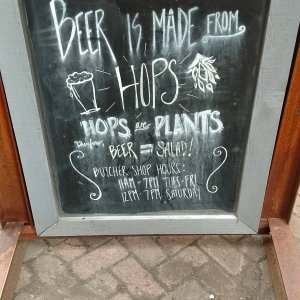 BEER IS MADE FROM
HOPS
HOPS are PLANTS
Therefore
BEER = SALAD!
BUTCHER SHOP HOURS:
11AM-7PM TUES-FRI
12PM-7PM, SATURDAY